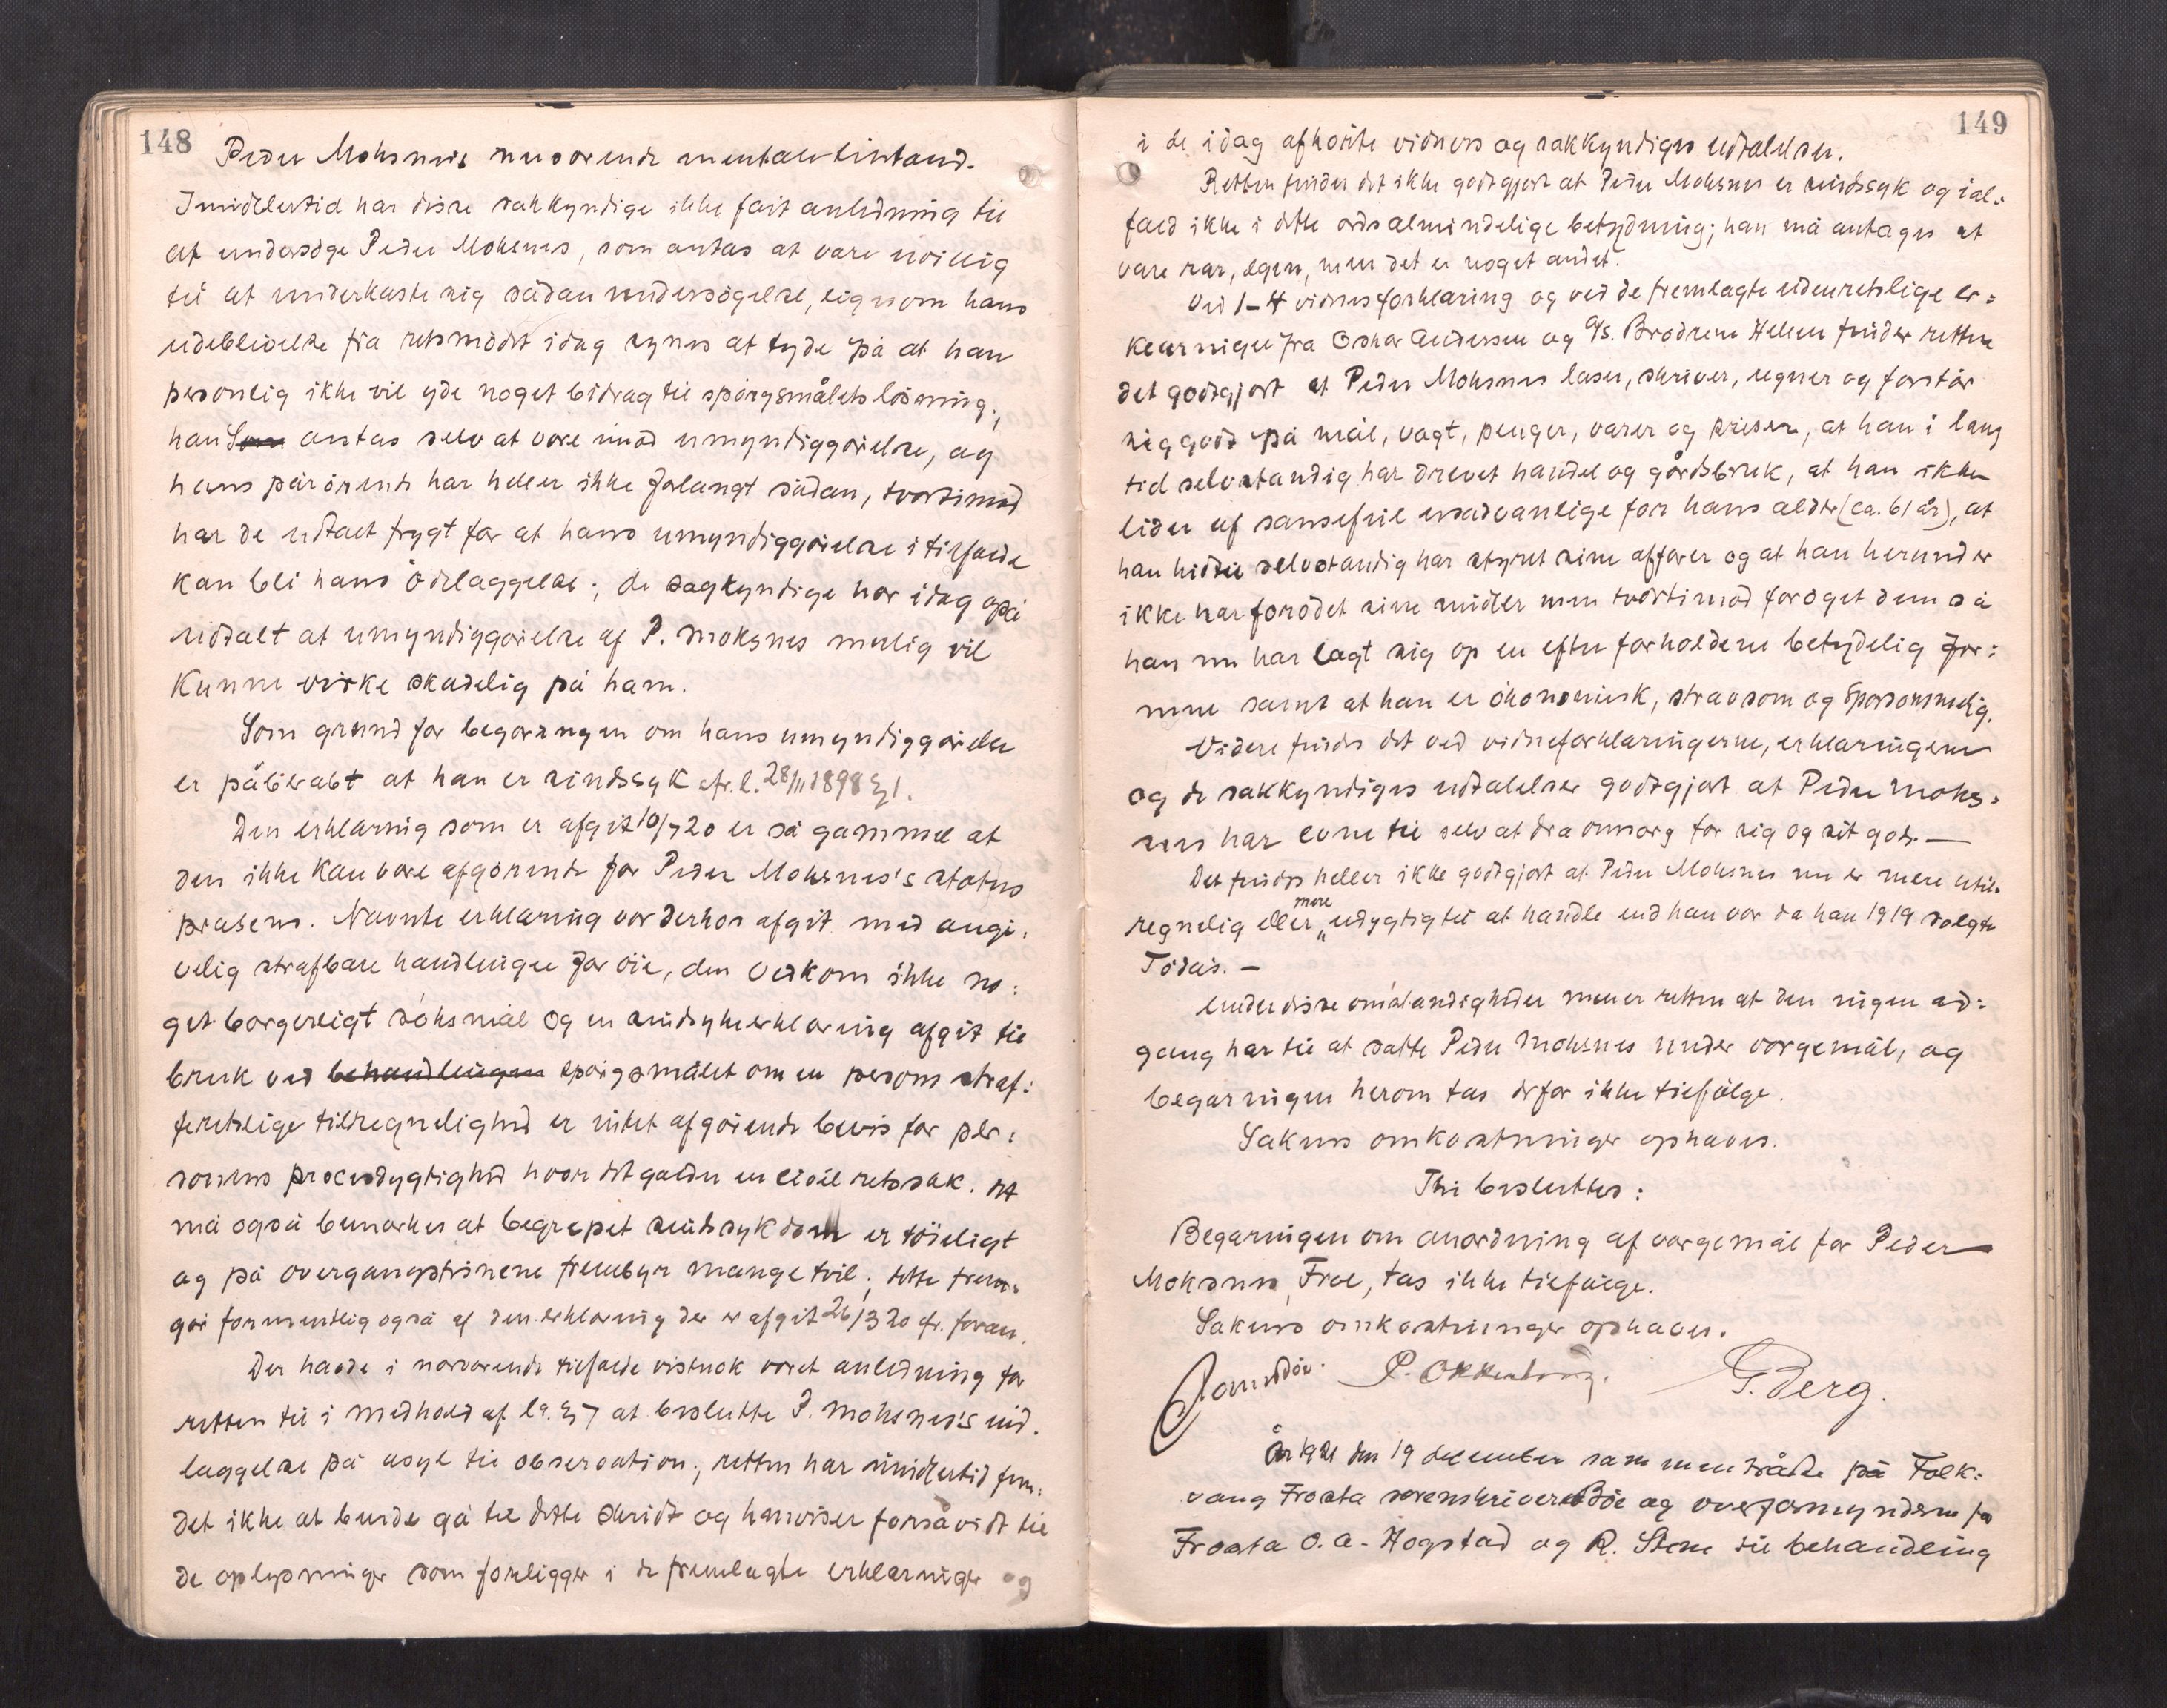 148
Peder Moksnes nuværende mentaltilstand.
Imidlertid har disse sakkyndige ikke fåit anledning til
at undersøge Peder Moksnes, som antas at være uvillig
til at underkaste sig sådan undersøgelse, ligesom hans
udeblivelse fra retsmødet idag synes at tyde på at han
personlig ikke vil yde noget bidrag til spørgsmålets løsning;
han antas selv at være imod umyndiggørelse, og
hans pårørende har heller ikke forlangt sådan, tvertimod
har de udtalt frygt for at hans umyndiggørelse i tilfælde
kan bli hans ødelæggelse; de sagkyndige har idag også
udtalt at umyndiggørelse af P. Moksnes mulig vil
kunne virke skadelig på ham.
Som grund for begæringen om hans umyndiggørelse
er påberåbt at han er sindssyk cfr. l. 28/11 1898 § 1.
Den erklæring som er afgit 10/7 20 er så gammel at
den ikke kan være afgørende for Peder Moksnes's status
præsens. Nævnte erklæring var derhos afgit med angi-
velig strafbare handlinger for øie, den vedkom ikke no-
get borgerligt søksmål og en sindsykeerklæring afgit til
bruk ved behandlingen spørgsmålet om en persons straf-
feretslige tilregnelighed er intet afgørende bevis for per-
sonens procesdygtighed hvor det gælder en civil retssak. Det
må også bemærkes at begrepet sindssykdom er tøieligt
og på overgangstrinene frembyr mange tvil; dette frem-
går formentlig også af den erklæring der er afgit 26/3 20 cfr. foran.
Der havde i nærværende tilfælde vistnok været anledning for
retten til i medhold af l.s. § 7 at beslutte P. Moksnes's ind-
læggelse på asyl til observation; retten har imidlertid fun-
det ikke at burde gå til dette skridt og henviser forsåvidt til
de oplysninger som foreligger i de fremlagte erklæringer og
149
i de idag afhørte vidners og sakkyndiges udtalelser.
Retten finder det ikke godtgjort at Peder Moksnes er sindssyk og ial-
fald ikke i dette ords almindelige betydning; han må antages at
være rar, egen, men det er noget andet.
Ved 1-4 vidnesforklaring og ved de fremlagte udenretslige er-
klæringer fra Oskar Andersen og A/s. Brødrene Hellem finder retten
det godtgjort at Peder Moksnes læser, skriver, regner og forstår
sig godt på mål, vægt, penger, varer og priser, at han i lang
tid selvstændig har drevet handel og gårdsbruk, at han ikke
lider af sansefeil usædvanlige for hans alder (ca. 61 år), at
han hidtil selvstændig har styret sine affærer og at han herunder
ikke har forødet sine midler men tvertimod forøget dem så
han nu har lagt sig op en efter forholdene betydelig for-
mue samt at han er økonomisk, strævsom og sparsommelig.
Videre findes det ved vidneforklaringerne, erklæringerne
og de sakkyndiges udtalelser godtgjort at Peder Moks-
nes har evne til selv at dra omsorg for sig og sit gods. —
Det findes heller ikke godtgjort at Peder Moksnes nu er mere util-
regnelig eller mere udygtig til at handle end han var da han 1919 solgte
Tödås. —
Under disse omstændigheder mener retten at den ingen ad-
gang har til at sætte Peder Moksnes under værgemål, og
begæringen herom tas derfor ikke tilfølge.
Sakens omkostninger ophæves.
Thi besluttes:
Begæringen om anordning af værgemål for Peder
Moksnes, Frol, tas ikke tilfølge.
Sakens omkostninger ophæves.
P. Okkenhaug. G. Berg.
År 1921 den 19 december sammentrådte på Folk-
vang Frosta sorenskriver Bøe og overformynderne for
Frosta O. A. Hogstad og R. Stene til behandling